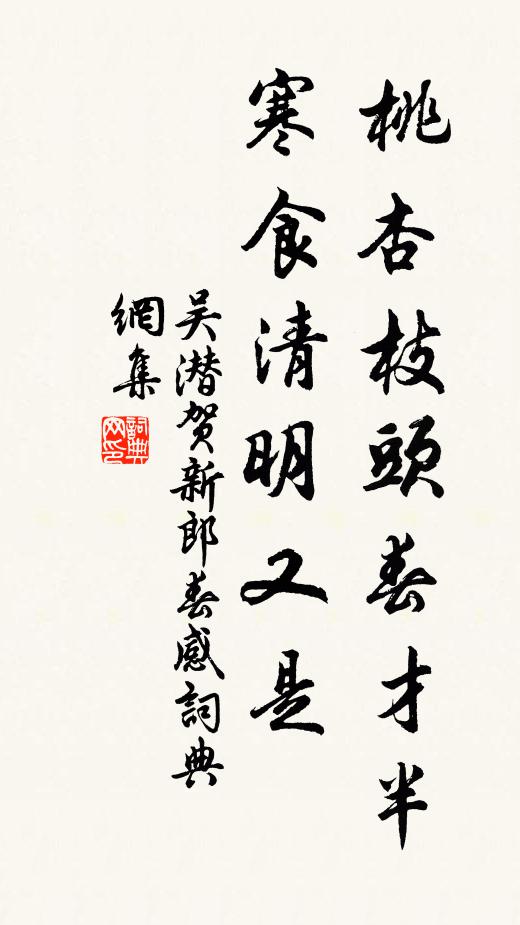 桃杏枝頭春才半
寒食清明又是
吴潜贺新郎春感詞典
網集
詞典
网印